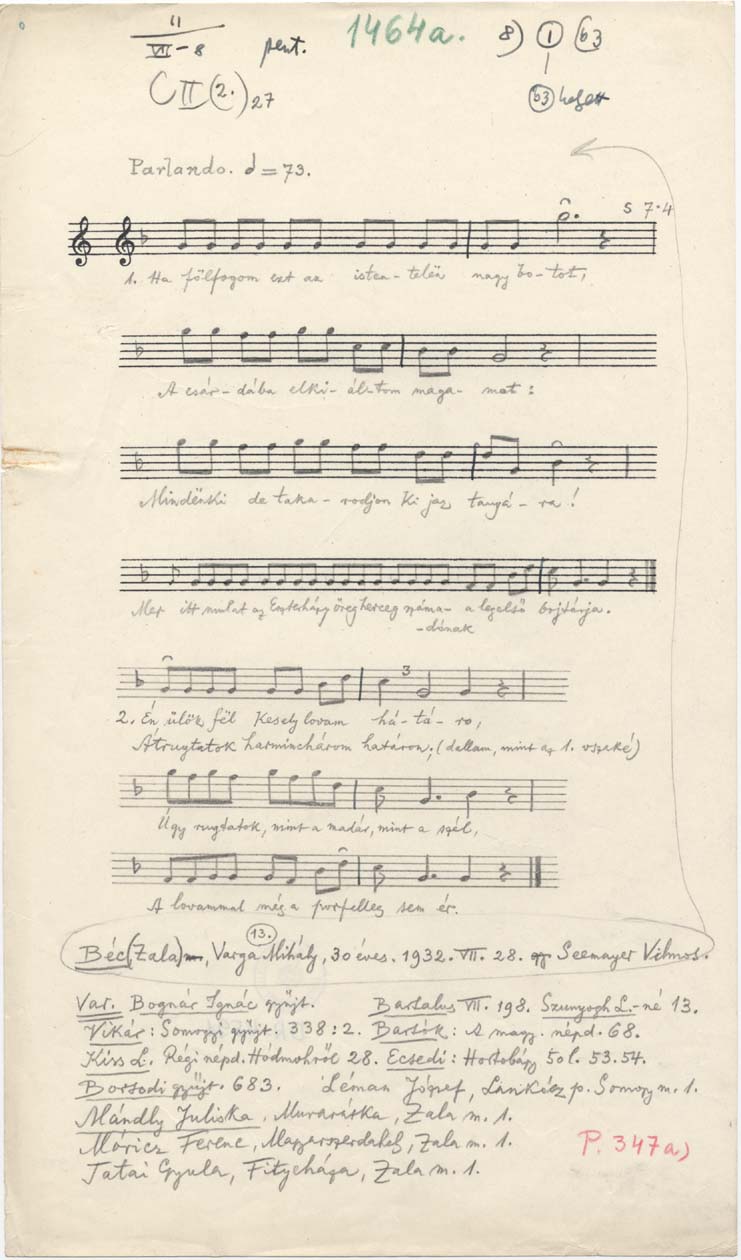 11
VII-8 pent. 1464a. 8) 1 (b3
C II (2.) 27 b3
Parlando. = 73.
S 7.4
1. Ha fölfogom ezt az isten-telen nagy bo-tot,
A csár-dába elki-ál-tom maga-mat:
Mindënki de taka-rodjon ki jaz tanyá-ra!
Mer itt mulat az Eszterházy öreg herceg száma- a legelső bojtárja.
-dónak
3
2. Én ülök föl Kesely lovam há-tá-ro,
Átrugtatok harminchárom határon; (dallam, mint az 1. vszaké)
Úgy rugtatok, mint a madár, mint a szél,
A lovammal még a porfelleg sem ér.
13.
Béc (Zala), Varga Mihály, 30 éves. 1932. VII. 28. Seemayer Vilmos.
Var. Bognár Ignác gyűjt. Bartalus VII. 198. Szunyogh L.-né 13.
Vikár: Somogyi gyűjt. 338:2. Bartók: A magy. népd. 68.
Kiss L. Régi népd. Hódmhről 28. Ecsedi: Hortobágy 50 l. 53.54.
Borsodi gyűjt. 683. Léman József, p. Somogy m. 1.
Mándly Juliska, Murarátka, Zala m. 1.
Móricz Ferenc, Magyarszerdahely, Zala m. 1.
P. 347a)
Tatai Gyula, Fityeháza, Zala m. 1.